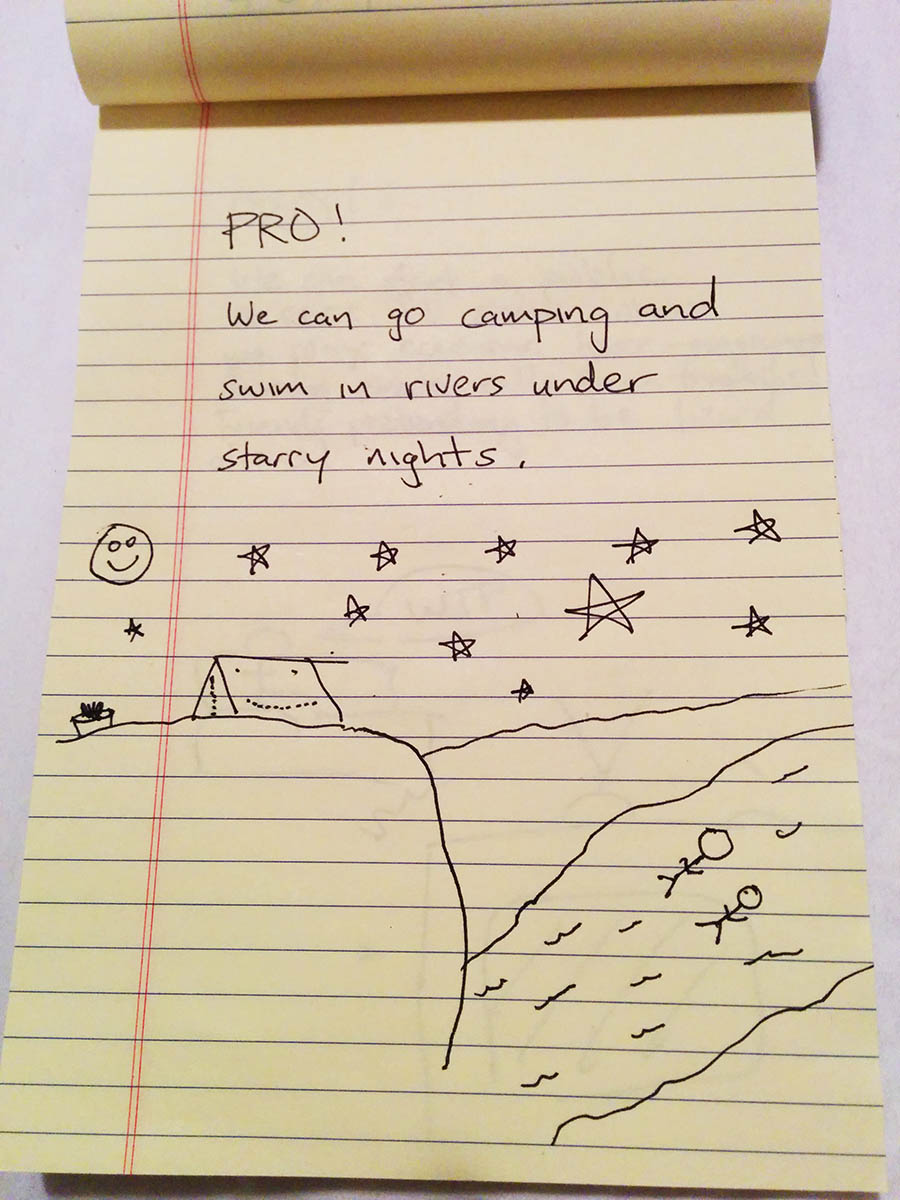 PRO!
We can go camping and
swim in rivers under
starry nights.